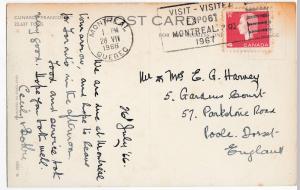 POST CARD
MONTREAL
1 PM
28 VII
1966
QUEBEC
VISIT - VISITEZ
EXPO 67
MONTREAL, P.Q.
1967
CANADA
4
26 July '66.
We are now at Montreal
tomorrow, and hope to leave
for Toronto in the afternoon.
Food and service both
very good. Hope you both well.
Cecily & Bertie
Mr & Mrs E. G. Harvey
5 Gardens Court
57 Parkstone Road
Poole. Dorset.
England